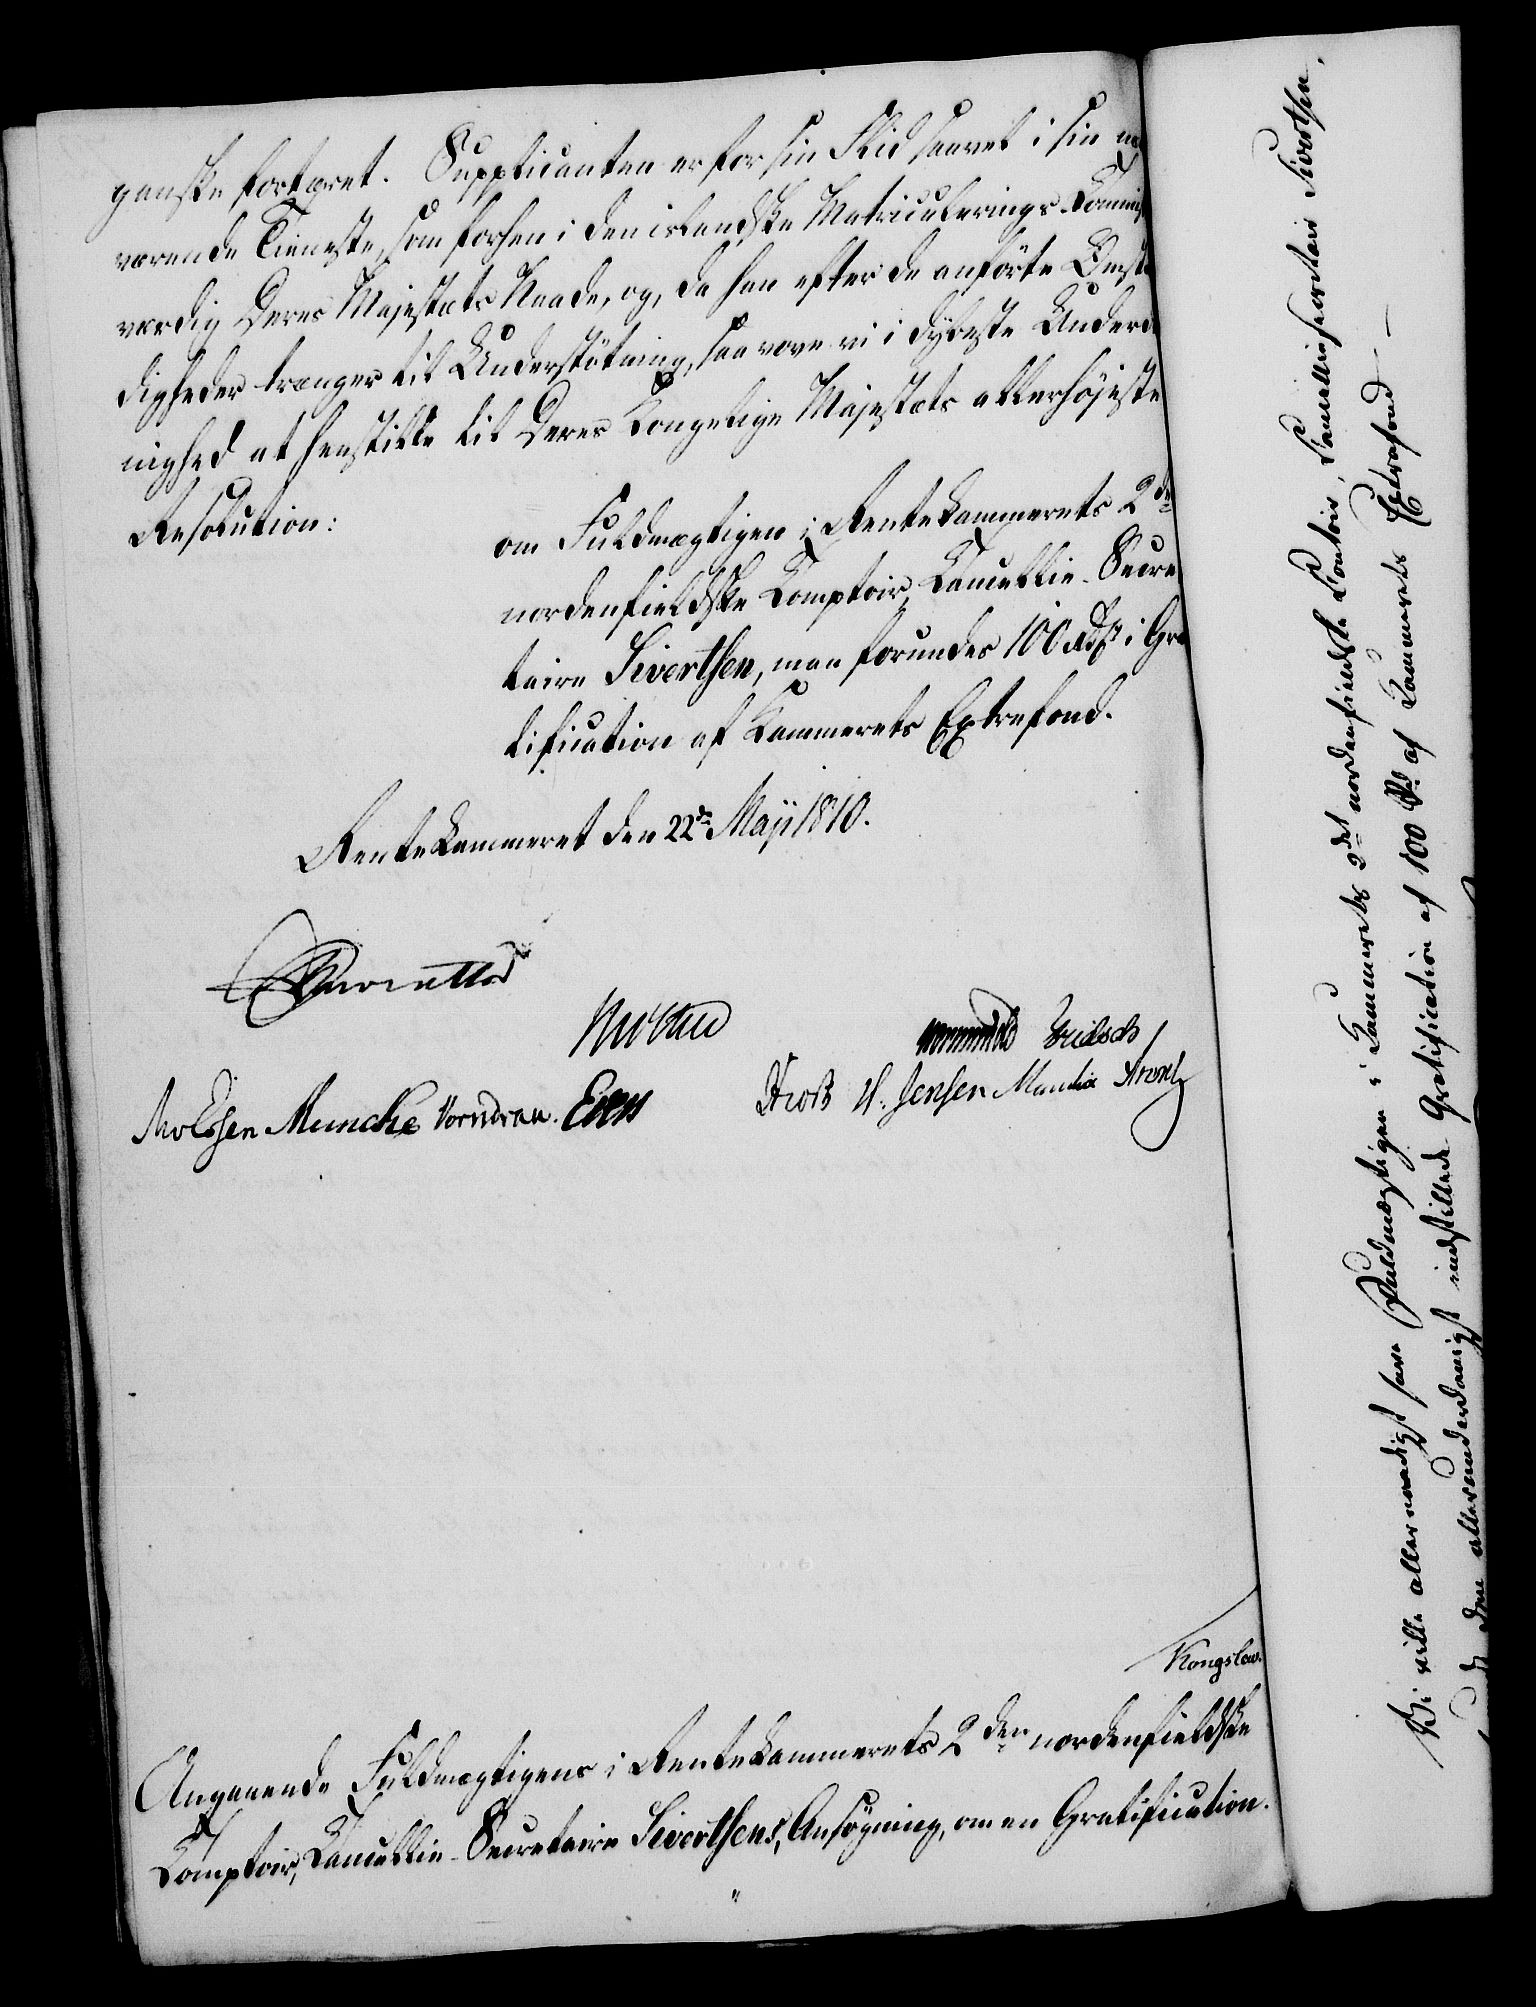 ganske fortæret. Supplicanten er for sin Flid saavel i sin nu
værende Tieneste, som forhen i den islandske Matriculerings-Commis
værdig Deres Majestæts Naade, og, da han efter de anförte Omstæ
digheder trænger til Understötning, saa vove vi i dybeste Underda
nighed at henstille til Deres Kongelige Majestæts allerhöjeste
Resolution:
om Fuldmægtigen i Rentekammerets 2de
nordenfieldske Comptoir, Cancellie-Secre
taire Sivertsen, maa forundes 100 Rd i Gra
tification af Kammerets Extrafond.
Rentekammeret den 22de Maji 1810.
Knuth
Wormskiold
Jensen Monrad
Müncke Vorndran.
Kongslew.
Angaaende Fuldmægtigens i Rentekammerets 2den nordenfieldske
Comptoir, Cancellie-Secretaire Sivertsens, Ansögning, om en Gratification.
Vi ville allernaadigst have Fuldmægtigen i Kammerets 2det nordenfieldske Contoir, Cancelliesecretair Sivertsen,
den allerunderdanigst indstillede Gratification af 100 Rd af Kammerets Extrafond